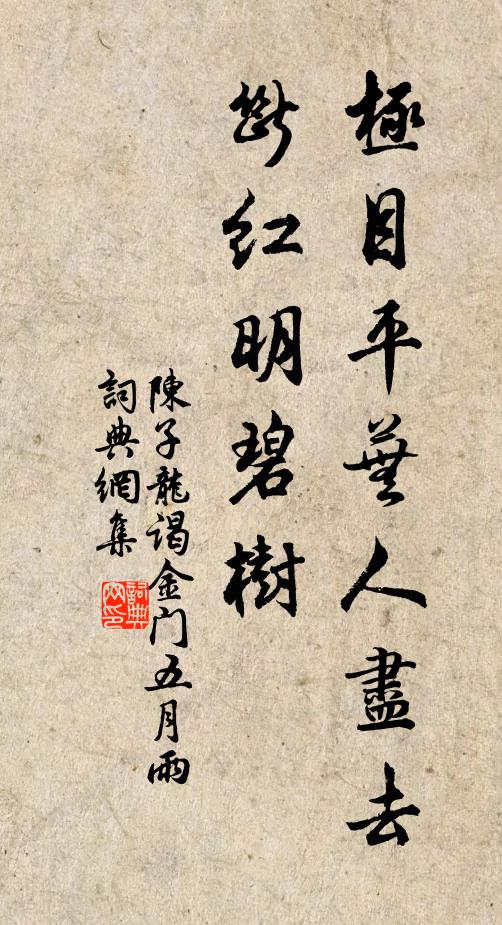 極目平蕪人盡去
斷紅明碧樹
陳子龍謁金门五月雨
詞典網集
詞典
网印